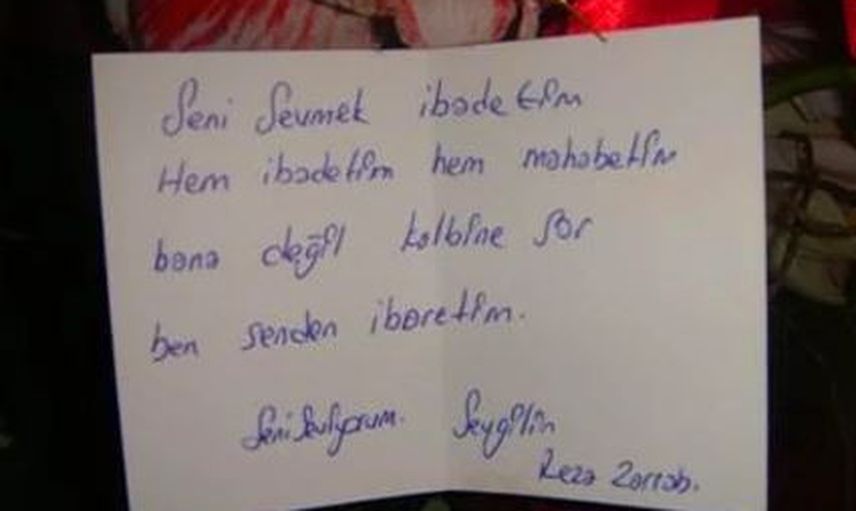 Seni Sevmek ibadetim
Hem ibadetim hem mahabetim
bana değil kalbine sor
ben senden ibaretim.
Seni Seviyorum. Seygilin
Reza Zarrab.